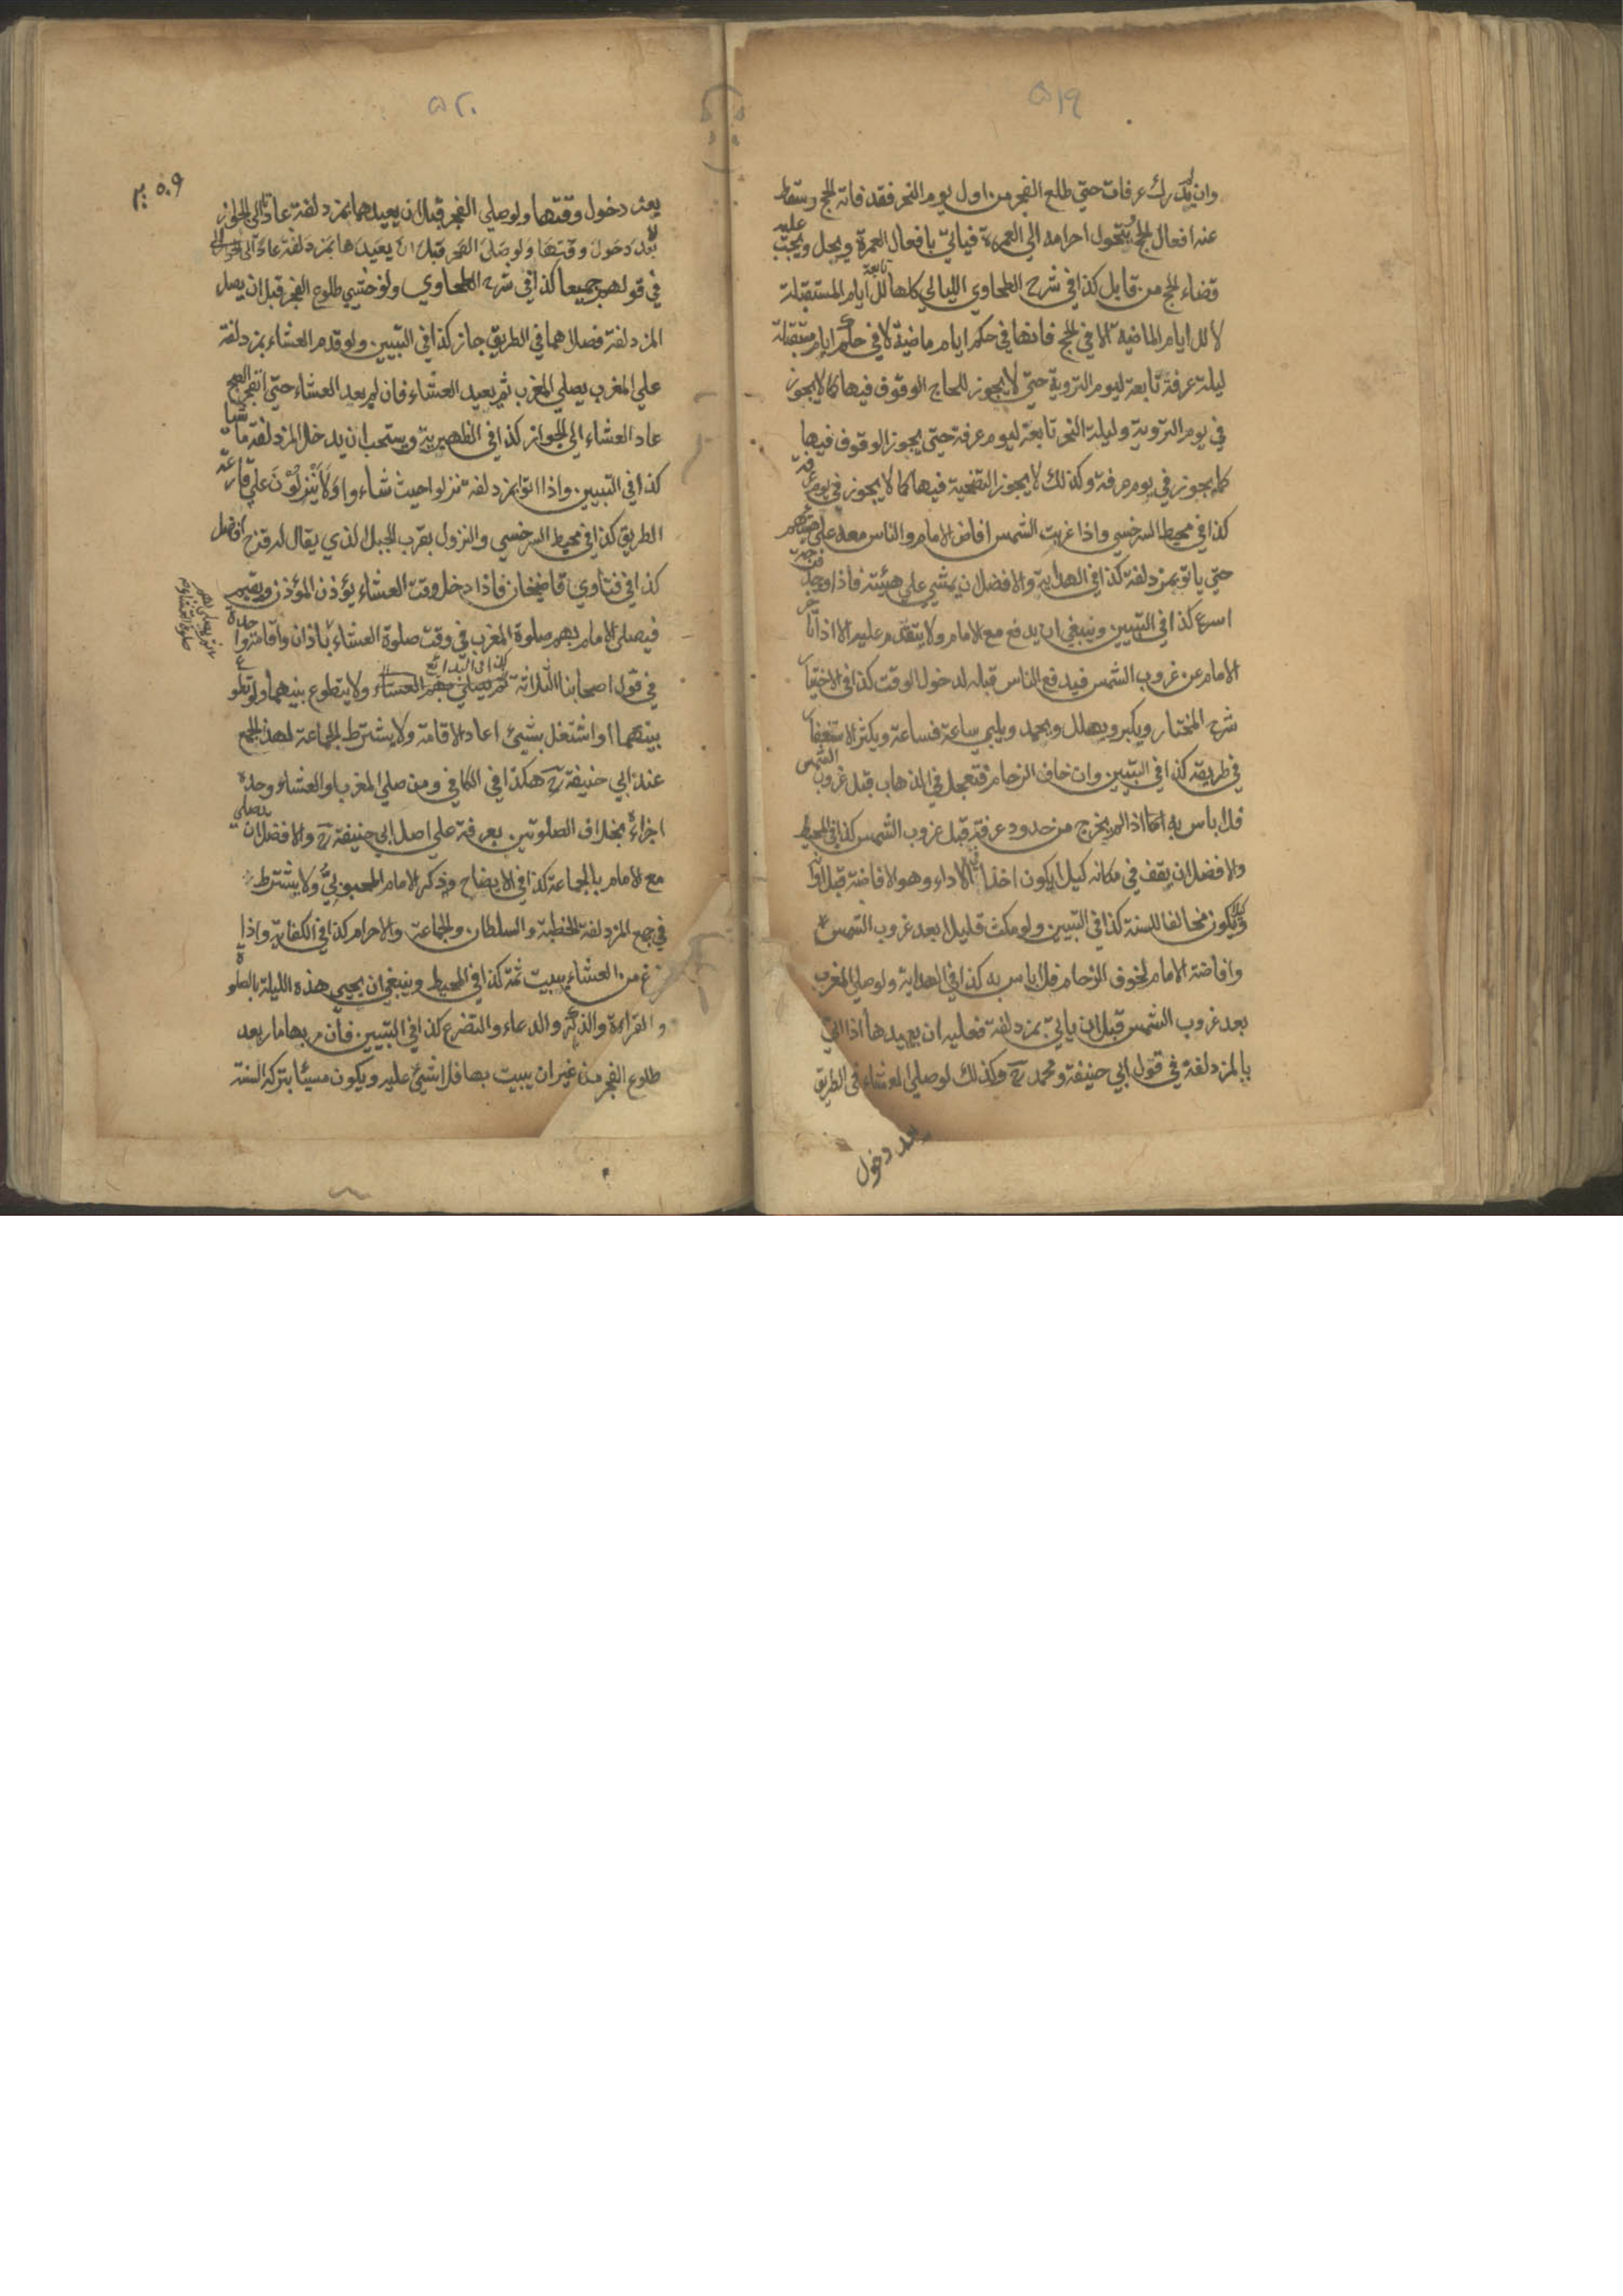 ٥١٩
وان لم يدرك عرفات حتي طلع الفجر من اول يوم النحر فقد فاته الحج وسقط
عنه افعال الحج ويتحول احرامه الي العمرة فيأتي بافعال العمرة ويحل ويجب عليه
قضاء الحج من قابل كذا في شرح الطحاوي الليالي كلها تابعة للايام المستقبلة
لا للايام الماضية الا في الحج فانها في حكم ايام ماضية لا في حكم ايام مستقبلة
ليلة عرفة تابعة ليوم التروية حتي لا يجوز للحاج الوقوف فيها كما لا يجوز
في يوم التروية وليلة النحر تابعة ليوم عرفة حتي يجوز الوقوف فيها
كما يجوز في يوم عرفة وكذلك لا يجوز التضحية فيها كما لا يجوز في يوم عرفة
كذا في محيط السرخسي واذا غربت الشمس افاض الامام والناس معه علي هينتهم
حتي ياتو بمزدلفة كذا في الهداية والافضل ان يمشي علي هيئته فاذا وجد فرجة
اسرع كذا في التبيين وينبغي ان يدفع مع الامام ولا يتقدم عليه الا اذا تاخر
الامام عن غروب الشمس فيدفع الناس قبله لدخول الوقت كذا في الاختيار
شرح المختار ويكبر ويهلل ويحمد ويلبي ساعة فساعة ويكثر الاستغفار
في طريقه كذا في التبيين وان خاف الزحام فتعجل في الذهاب قبل غروب الشمس
فلا باس به اما اذا لم يخرج من حدود عرفة قبل غروب الشمس كذا في المحيط
والافضل ان يقف في مكانه كيلا يكون اخذا في الاداء وهو الافاضة قبل اوانه
وكيلا يكون مخالفا للسنة كذا في التبيين ولو مكث قليلا بعد غروب الشمس
وافاضة الامام لخوف الزحام فلا باس به كذا في الهداية ولو صلي المغرب
بعد غروب الشمس قبل ان يأتي بمزدلفة فعليه ان يعيدها اذا اتي
بالمزدلفة في قول ابي حنيفة ومحمد رح وكذلك لو صلي العشاء في الطريق
بعد دخول
٥٢٠
٥٠٩
بعد دخول وقتها ولو صلي الفجر قبل ان يعيدهما بمزدلفة عادتا الي الجواز
بعد دخول وقتها ولو صلي الفجر قبل ان يعيدها بمزدلفة عادتا الي الجواز
في قولهم جميعا كذا في شرح الطحاوي ولو خشي طلوع الفجر قبل ان يصل
المزدلفة فصلاهما في الطريق جاز كذا في التبيين ولو قدم العشاء بمزدلفة
علي المغرب يصلي المغرب ثم يعيد العشاء فان لم يعد العشاء حتي انفجر الصبح
عاد العشاء الي الجواز كذا في الظهيرية ويستحب ان يدخل المزدلفة ماشيا
كذا في التبيين واذا اتوا بمزدلفة نزلوا حيث شاءوا ولا ينزلون علي قارعة
الطريق كذا في محيط السرخسي والنزول بقرب الجبل الذي يقال له قزح افضل
كذا في فتاوي قاضيخان فاذا دخل وقت العشاء يؤذن المؤذن ويقيم
فيصلي الامام بهم صلوة المغرب في وقت صلوة العشاء باذان واقامة واحدة
ثم يصلي بهم صلوة العشاء
في قول اصحابنا الثلاثة كذا في البدائع ثم يصلي بهم العشاء ولا يتطوع بينهما ولو تطوع
بينهما او اشتغل بشيئ اعاد الاقامة ولا يشترط الجماعة لهذا الجمع
عند ابي حنيفة رح هكذا في الكافي ومن صلي المغرب او العشاء وحده
اجزاه بخلاف الصلوتين بعرفة علي اصل ابي حنيفة رح والافضل ان يصلي
مع الامام بالجماعة كذا في الايضاح وذكر الامام المحبوبي ولا يشترط
في جمع المزدلفة الخطبة والسلطان والجماعة والاحرام كذا في الكفاية واذا
فرغ من العشاء يبيت ثمة كذا في المحيط وينبغي ان يحيي هذه الليلة بالصلوة
والقراءة والذكر والدعاء والتضرع كذا في التبيين فان مر بها مار بعد
طلوع الفجر من غير ان يبيت بها فلا شيئ عليه ويكون مسيئا بتركه السنة